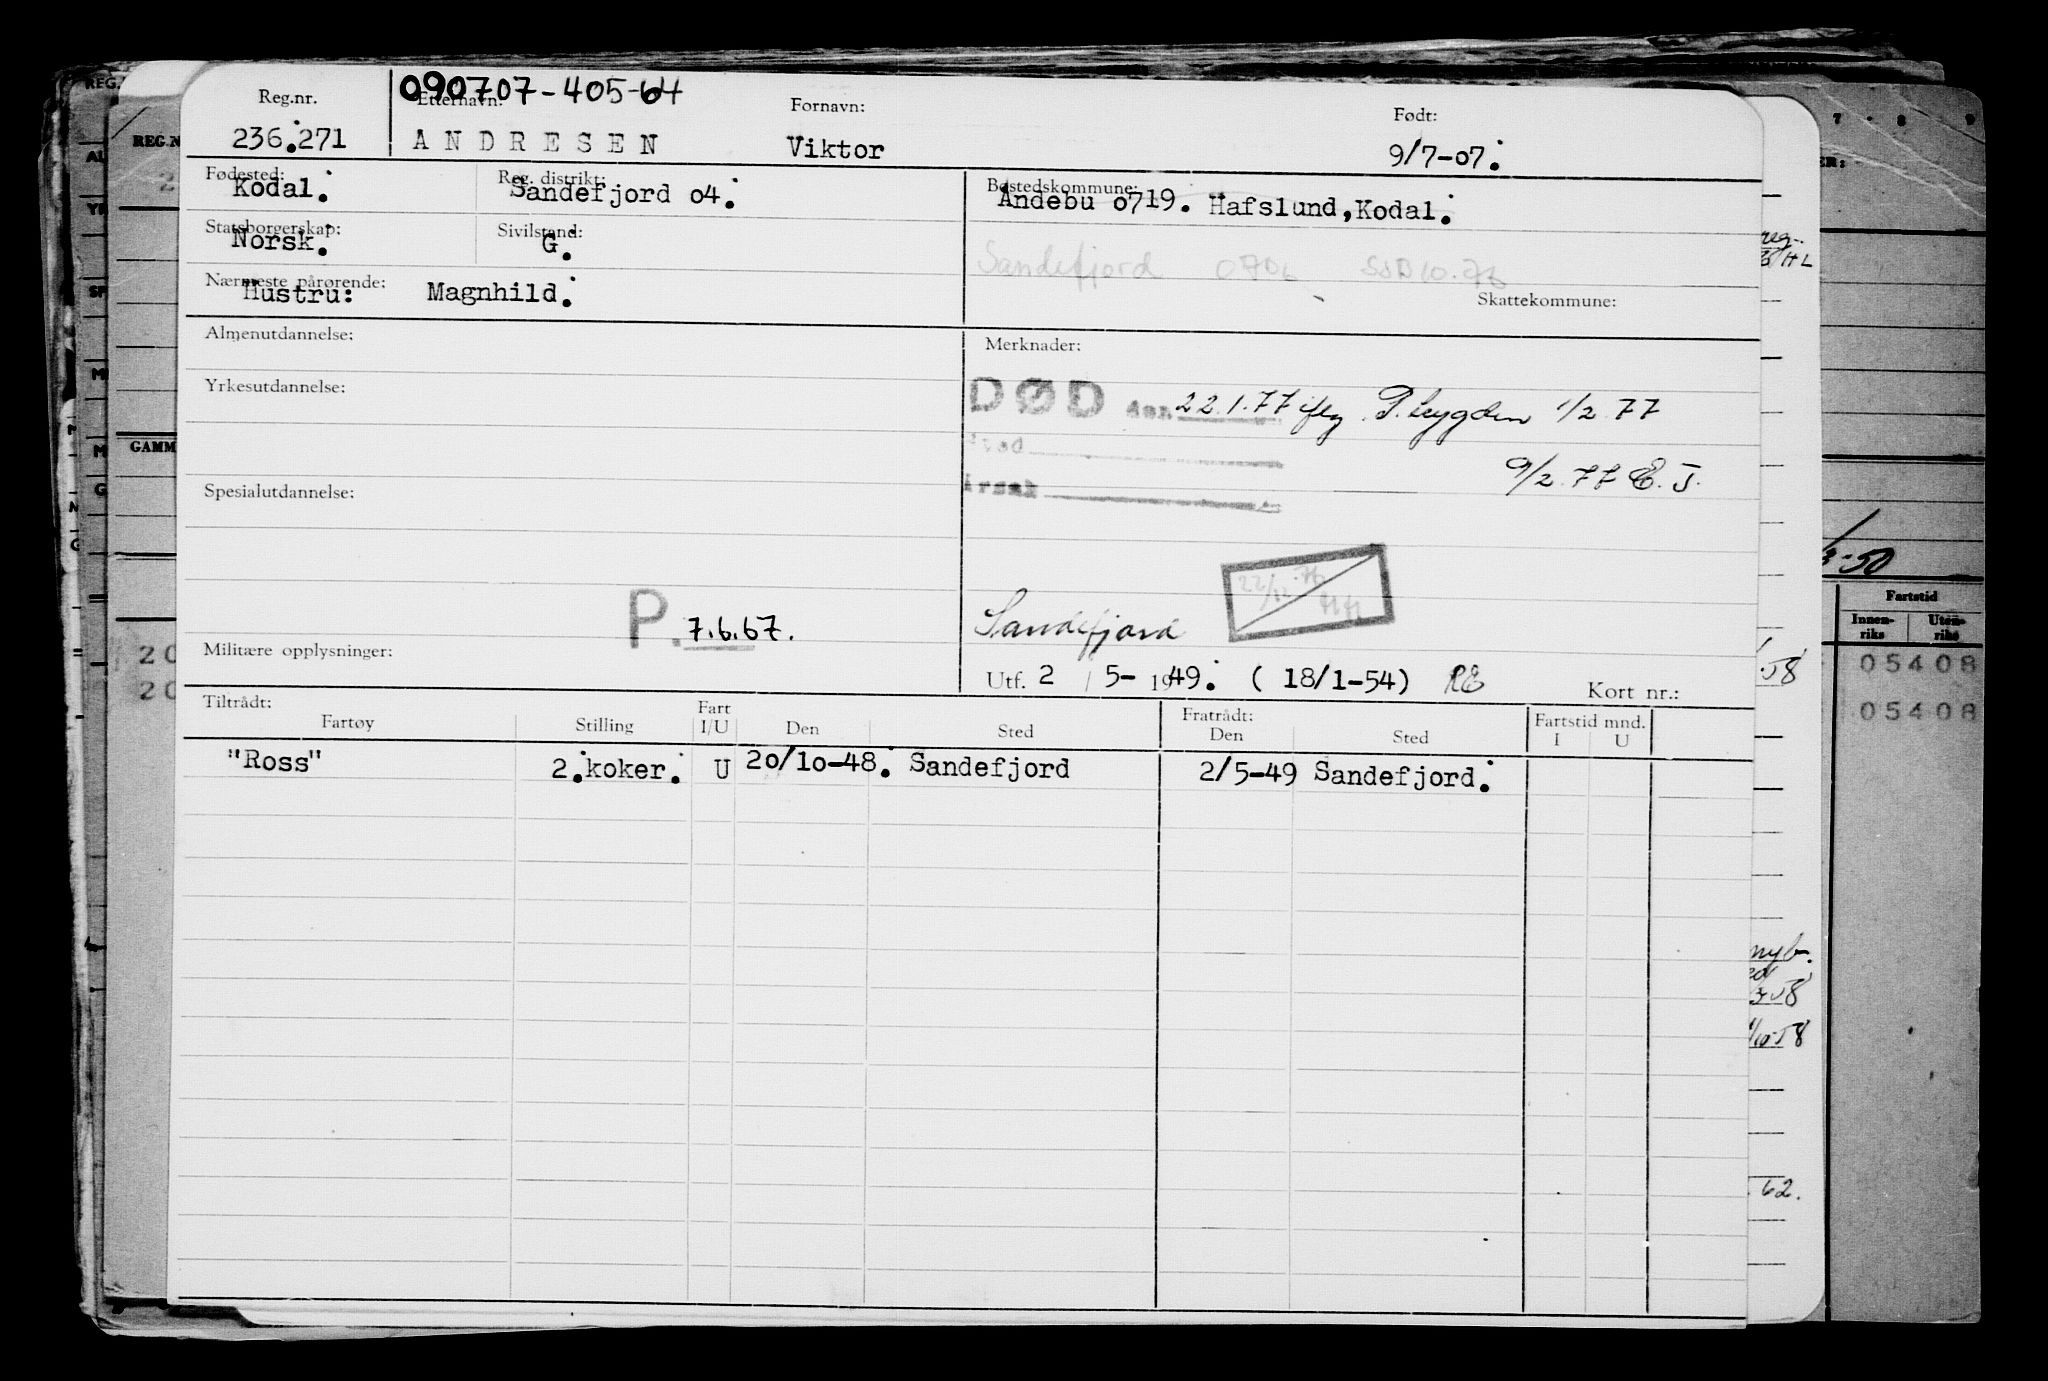 090707-405-64
Reg.nr. Etternavn: Fornavn: Født:
236.271 ANDRESEN Viktor 9/7-07.
Fødested: Reg. distrikt: Bostedskommune:
Kodal. Sandefjord o4. Andebu o719. Hafslund,Kodal.
Statsborgerskap: Sivilstand:
Norsk. G. Sandefjord 0706 SSB 10.76
Nærmeste pårørende: Skattekommune:
Hustru: Magnhild.
Almenutdannelse: Merknader:
Yrkesutdannelse:
DØD den 22.1.77 iflg. P. trygden 1/2 77
Sted
9/2 77 E.J.
Spesialutdannelse: Årsak
22/12-76 HH
P. 7.6.67. Sandefjord
Militære opplysninger: Utf. 2 / 5- 1949. ( 18/1-54) RE Kort nr.:
Tiltrådt: Fart Fratrådt: Fartstid mnd.
Fartøy Stilling I/U Den Sted Den Sted I U
"Ross" 2.koker. U 20/10-48. Sandefjord 2/5-49 Sandefjord.
REG.
REG.N
GAMM
7 8 9
ER:
3-50
Fartstid
Innen-riks Uten-riks
20 05408
20 05408
58
62.